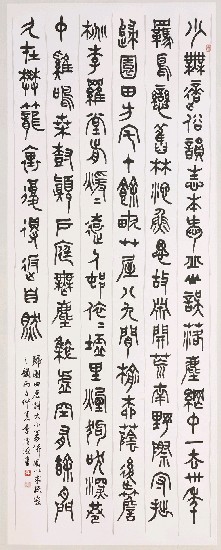 少無適俗韻性本愛丘山誤落塵網中一去卅年
羈鳥戀舊林池魚思故淵開荒南野際守拙
歸園田方宅十餘畝艸屋八九間榆柳蔭後簷
桃李羅堂前曖曖遠人邨依依墟里煙狗吠深巷
中雞鳴桑樹顛戶庭無塵雜虛室有餘閒
久在樊籠裏復得返自然
歸園田居詩